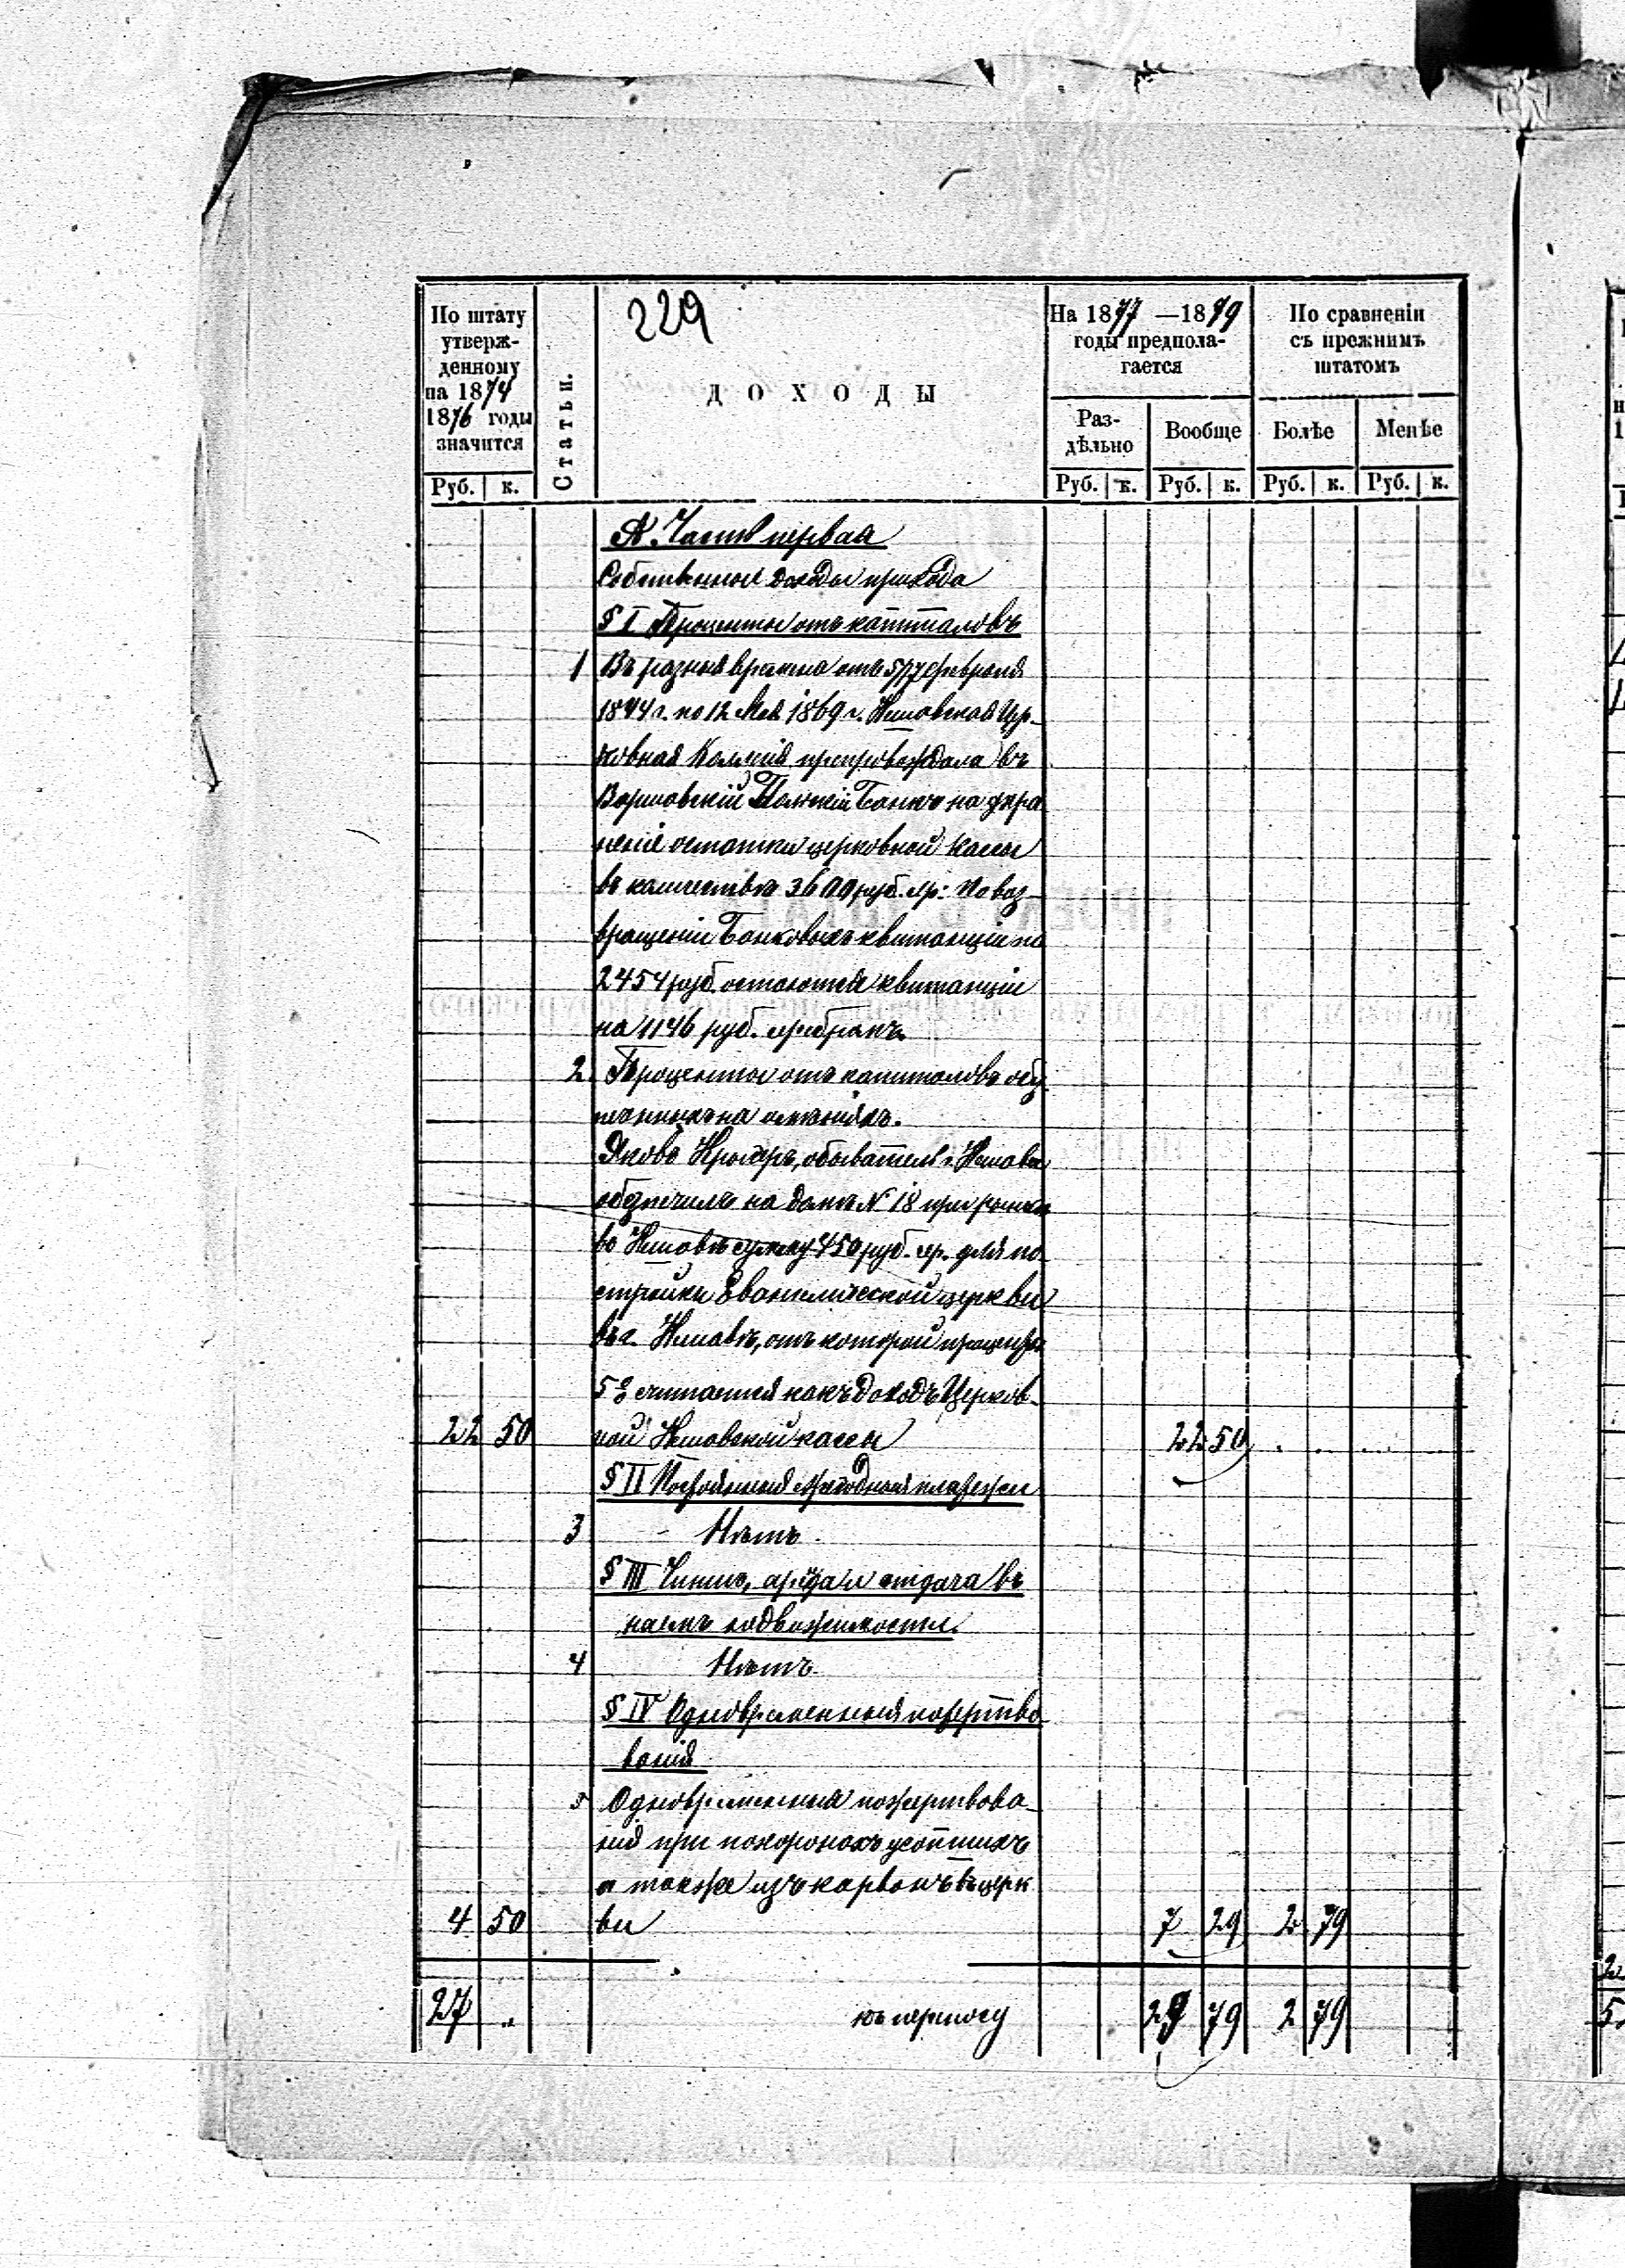 229
По штату
утверж-
денному
на 1874
1876 годы
значится
Руб. к.
Статьи.
ДОХОДЫ
На 1877 —1879
годы предпола-
гается
Раз-
дѣльно
Вообще
Руб. к. Руб. к.
По сравненіи
съ прежнимъ
штатомъ
Болѣе Менѣе
Руб. к. Руб. к.
А. Часть первая
Собственные доходы прихода
§ I Проценты отъ капиталовъ
1 Въ разныя времена отъ 5/17 февраля
1844 г. по 12 Мая 1869 г. Нешавская Цер-
ковная Коллегія препровождала въ
Варшавскій Польскій Банкъ на хра
неніе остатки церковной кассы
въ количествѣ 3600 руб. сер: По воз-
вращеніи Банковыхъ квитанціи на
2454 руб. остаются квитанціи
на 1146 руб. серебромъ.
2. Проценты отъ капиталовъ обез
печенныхъ на имѣніяхъ.
Яковъ Крыгеръ, обыватель г. Нешавы
обезпечилъ на домѣ № 18 при рынкѣ
въ Нешавѣ сумму 450 руб. сер. для по-
стройки Евангелической церкви
въ г. Нешавѣ, отъ которой проценты
5% считаются какъ доходъ Церков-
22 50 ной Нешавской кассы 22 50
§ II Постоянныя ежегодныя платежи
3 - Нѣтъ.
§ III Чиншъ, аренда и отдача въ
наемъ недвижимости.
4 Нѣтъ.
§ IV Одновременныя пожертво-
ванія
5 Одновременныя пожертвова-
нія при похоронахъ усопшихъ
а также изъ карвонъ въ церк
4 50 ви 7 29 2 79
27 „ къ переносу 29 79 2 79